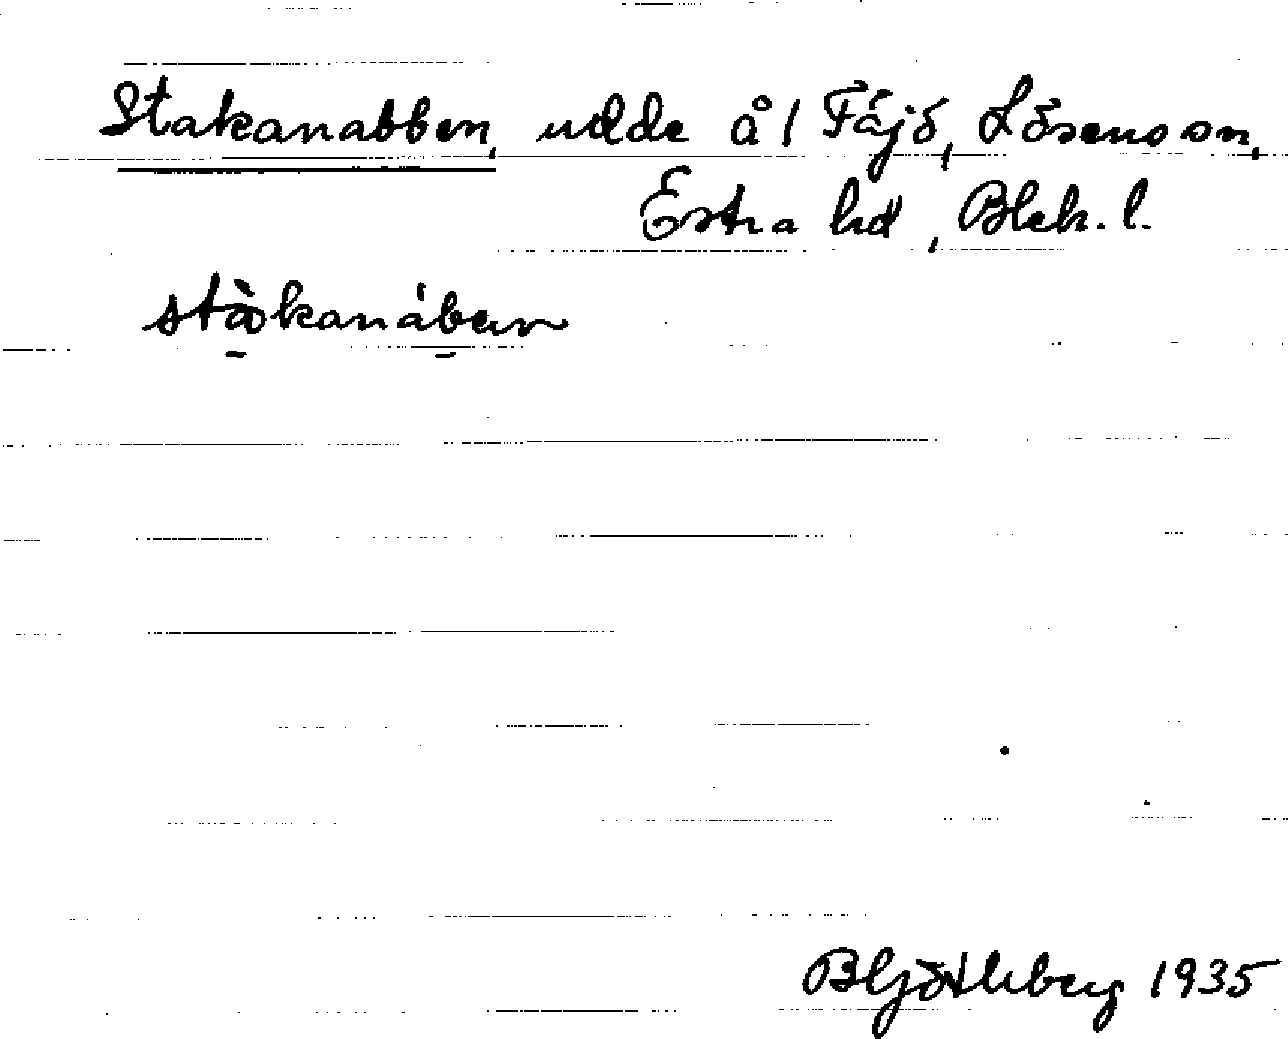 Stakanabben, udde å / Fäjö, Lösens sn,
Östra hd, Blek. l.
stàkanáben
Bljötleberg 1935